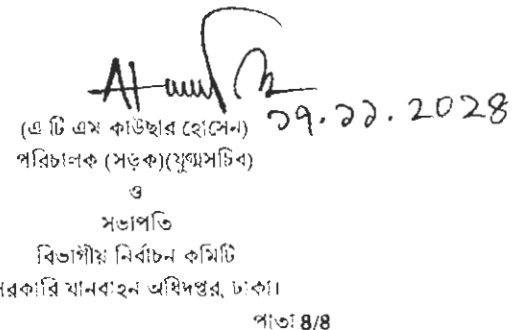 ১৭.১১.২০২৪
(এ টি এম কাউছার হোসেন)
পরিচালক (সড়ক)(যুগ্মসচিব)
ও
সভাপতি
বিভাগীয় নির্বাচন কমিটি
সরকারি যানবাহন অধিদপ্তর, ঢাকা।
পাতা 8/8